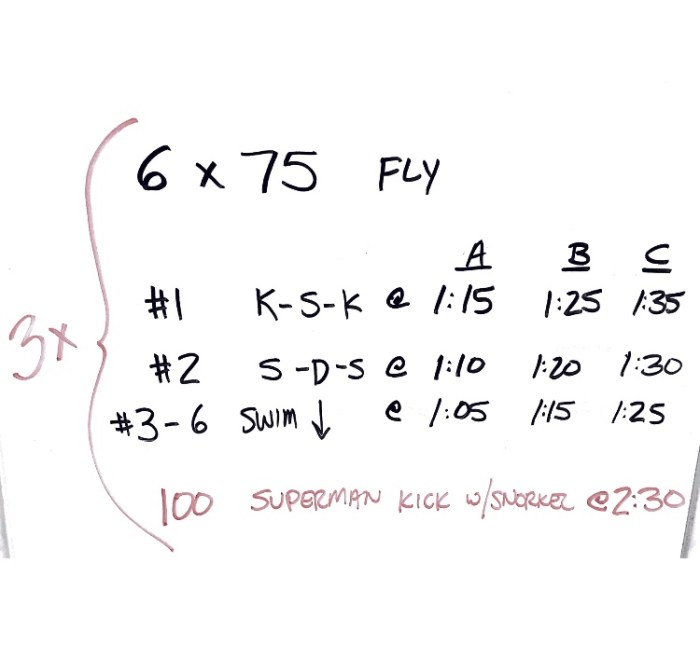 3x
6 x 75 FLY
A B C
#1 K-S-K @ 1:15 1:25 1:35
#2 S-D-S @ 1:10 1:20 1:30
#3-6 SWIM ↓ @ 1:05 1:15 1:25
100 SUPERMAN KICK w/SNORKEL @2:30